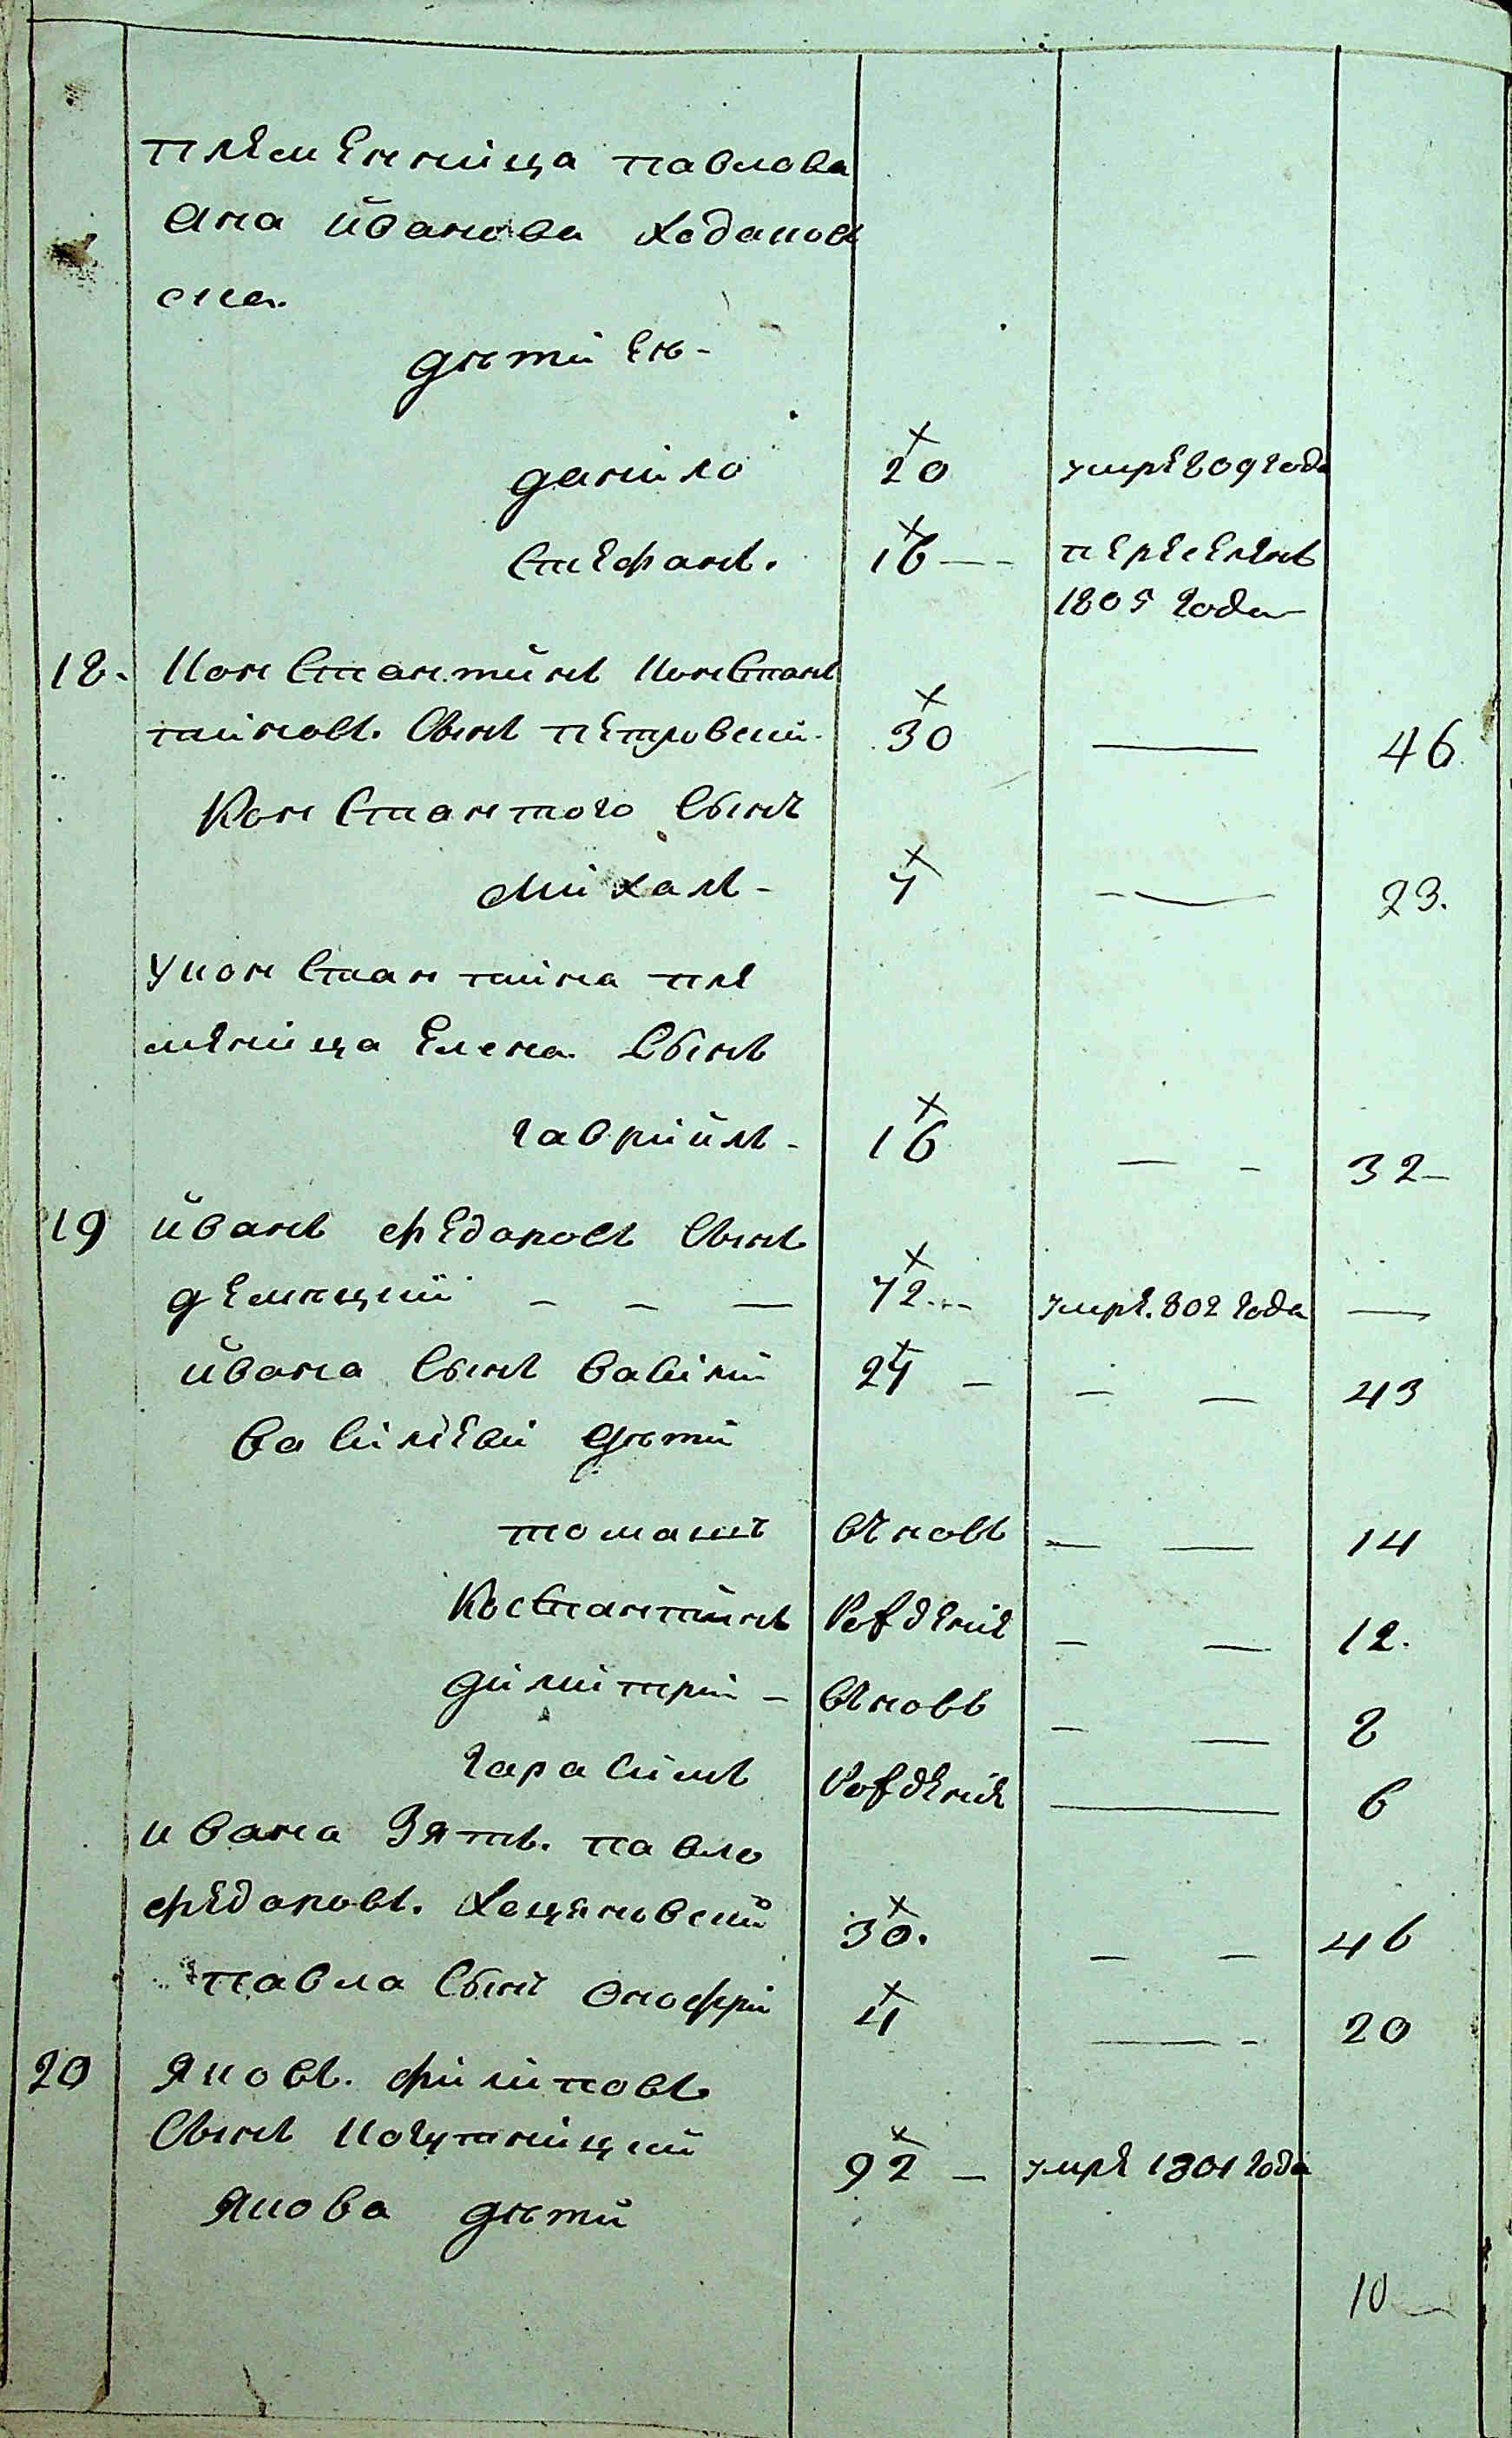 племенница павлова
Ана йванова Ходанов
ска.
дѣти Ен-
данило 20 умре 809 года
Стефанъ. 16 — переселенъ
1805 года
18. Констан.тинъ Констант
тиновъ. Сынъ петровски. 30 — 46
Константого Сынъ
михалъ - 7 — 23.
У констан тина пле
меница Елена Сынъ
гаврийлъ - 16 — - 32 -
19 йванъ федаровъ Сынъ
72 - умре. 802 года —
йвана Сынъ васили 27 — — — 43
василеви дѣти
томашъ вновъ — — 14
Костантинъ рожденіе — — 12.
димитри — вновъ — — 8
гарасимъ рожденіе — 6
ивана Зять. павло
федаровъ. 30. — — 46
павла Сынъ онофри 4 — - 20
20 Яковъ. филиповъ
Сынъ 92 — умре 1801 года
Якова дѣти
10